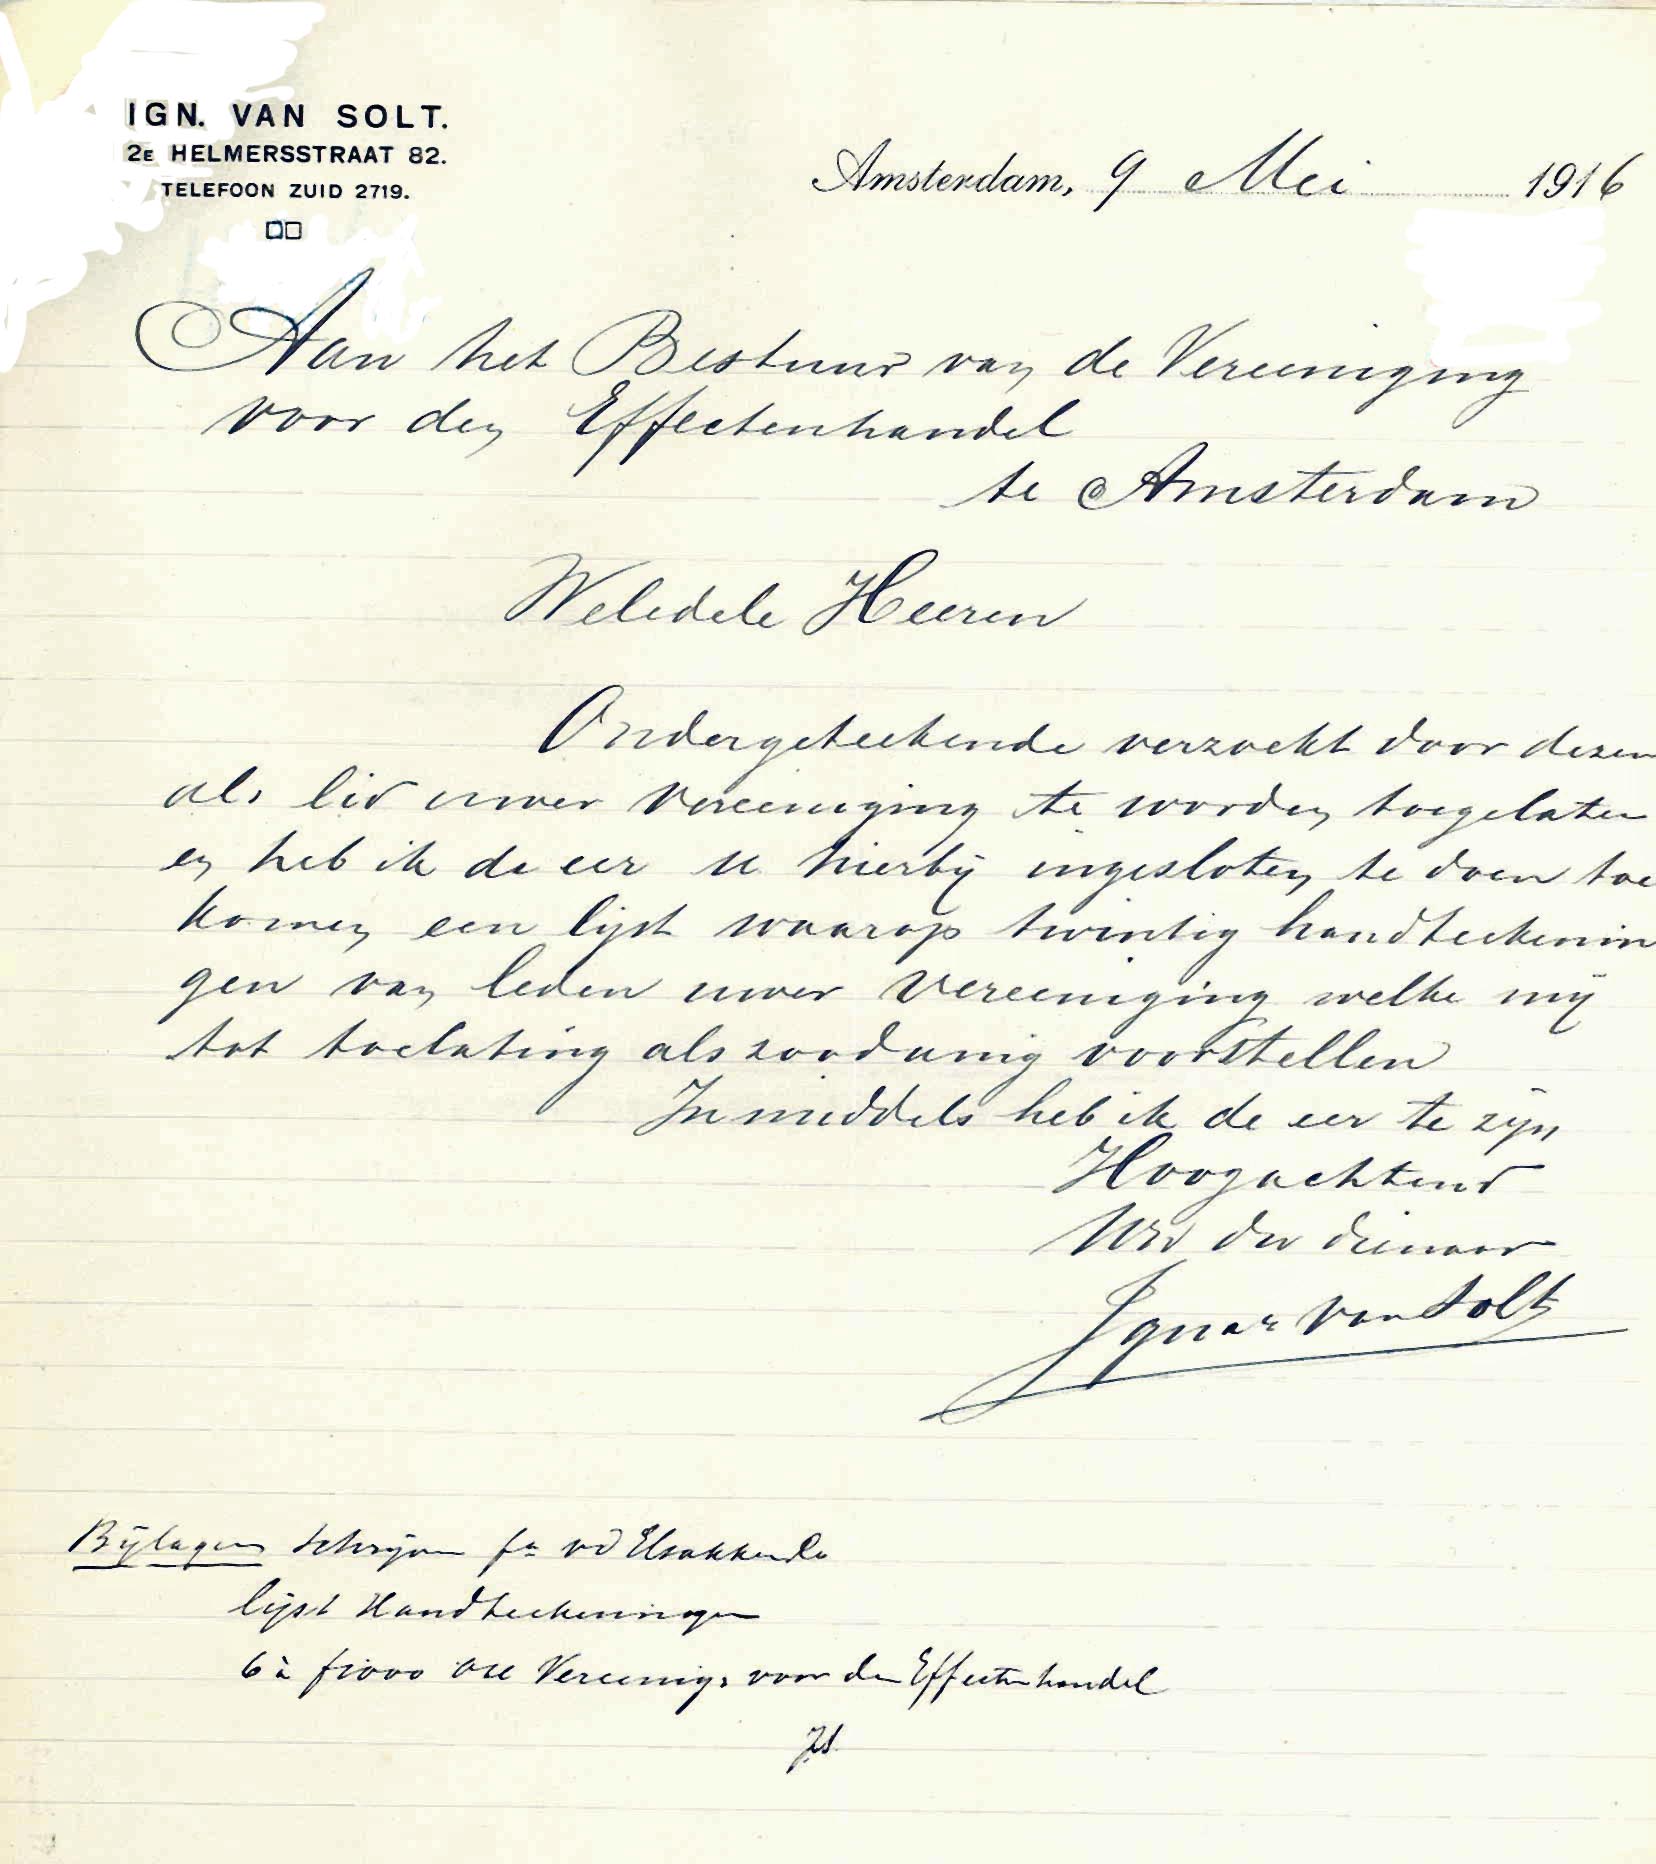 IGN. VAN SOLT.
2E HELMERSSTRAAT 82.
TELEFOON ZUID 2719.
Amsterdam, 9 Mei 1916
Aan het Bestuur van de Vereeniging
voor den Effectenhandel
te Amsterdam
Weledele Heeren
Ondergeteekende verzoekt door dezen
als lid uwer Vereeniging te worden toegelaten
en heb ik de eer u hierbij ingesloten te doen toe
komen een lijst waarop twintig handteekenin
gen van leden uwer Vereeniging welke mij
tot toelating als zoodanig voorstellen
Inmiddels heb ik de eer te zijn
Hoogachtend
UEd dw dienaar
Ignaz van Solt
Bijlagen Schrijven fa vd
lijst Handteekeningen
6 à f1000 Vereenig. voor den Effectenhandel